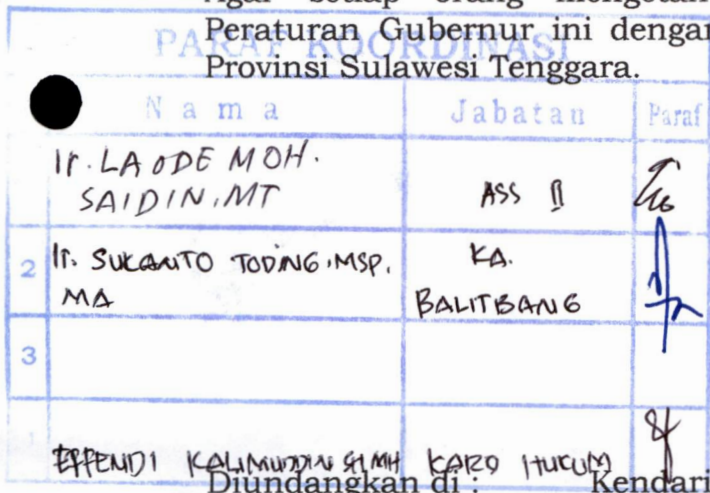 Agar setiap orang mengetah
Peraturan Gubernur ini dengan
PARAF KOORDINASI
Provinsi Sulawesi Tenggara.
Nama Jabatan Paraf
Ir. LA ODE MOH.
SAIDIN, MT ASS II
2 Ir. SUKANTO TODING, MSP. KA.
MA BALITBANG
3
EFFENDI KALIMUDDIN SH, MH KARO HUKUM
Diundangkan di : Kendari